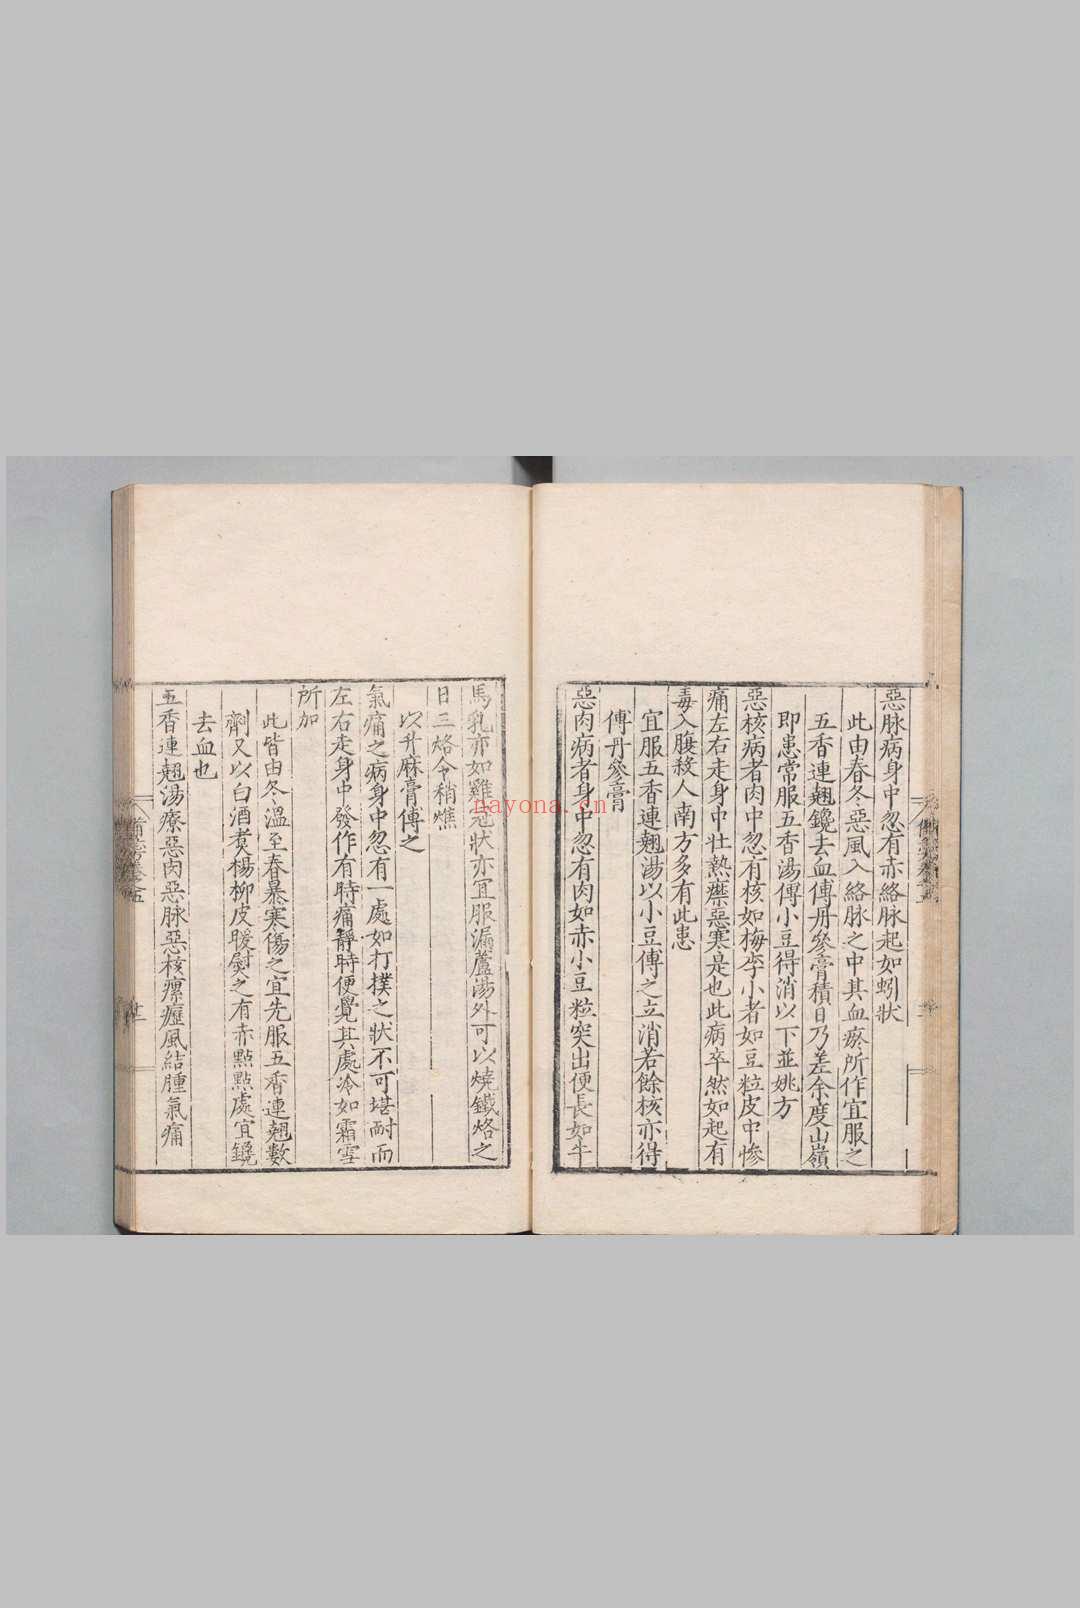 惡脉病身中忽有赤絡脉起如蚓狀
此由春冬惡風入絡脉之中其血瘀所作宜服之
五香連翹鑱去血傅丹參膏積日乃差余度山嶺
即患常服五香湯傅小豆得消以下並姚方
惡核病者肉中忽有核如梅李小者如豆粒皮中慘
痛左右走身中壯熱㾕惡寒是也此病卒然如起有
毒入腹殺人南方多有此患
宜服五香連翹湯以小豆傅之立消若餘核亦得
傅丹參膏
惡肉病者身中忽有肉如赤小豆粒突出便長如牛
馬乳亦如雞冠狀亦宜服漏蘆湯外可以燒鐵烙之
日三烙令稍焦
以升麻膏傅之
氣痛之病身中忽有一處如打撲之狀不可堪耐而
左右走身中發作有時痛靜時便覺其處冷如霜雪
所加
此皆由冬溫至春暴寒傷之宜先服五香連翹數
劑又以白酒煮楊柳皮暖熨之有赤點點處宜鑱
去血也
五香連翹湯療惡肉惡脉惡核瘰癧風結腫氣痛
卷五
廿二
nayona.cn